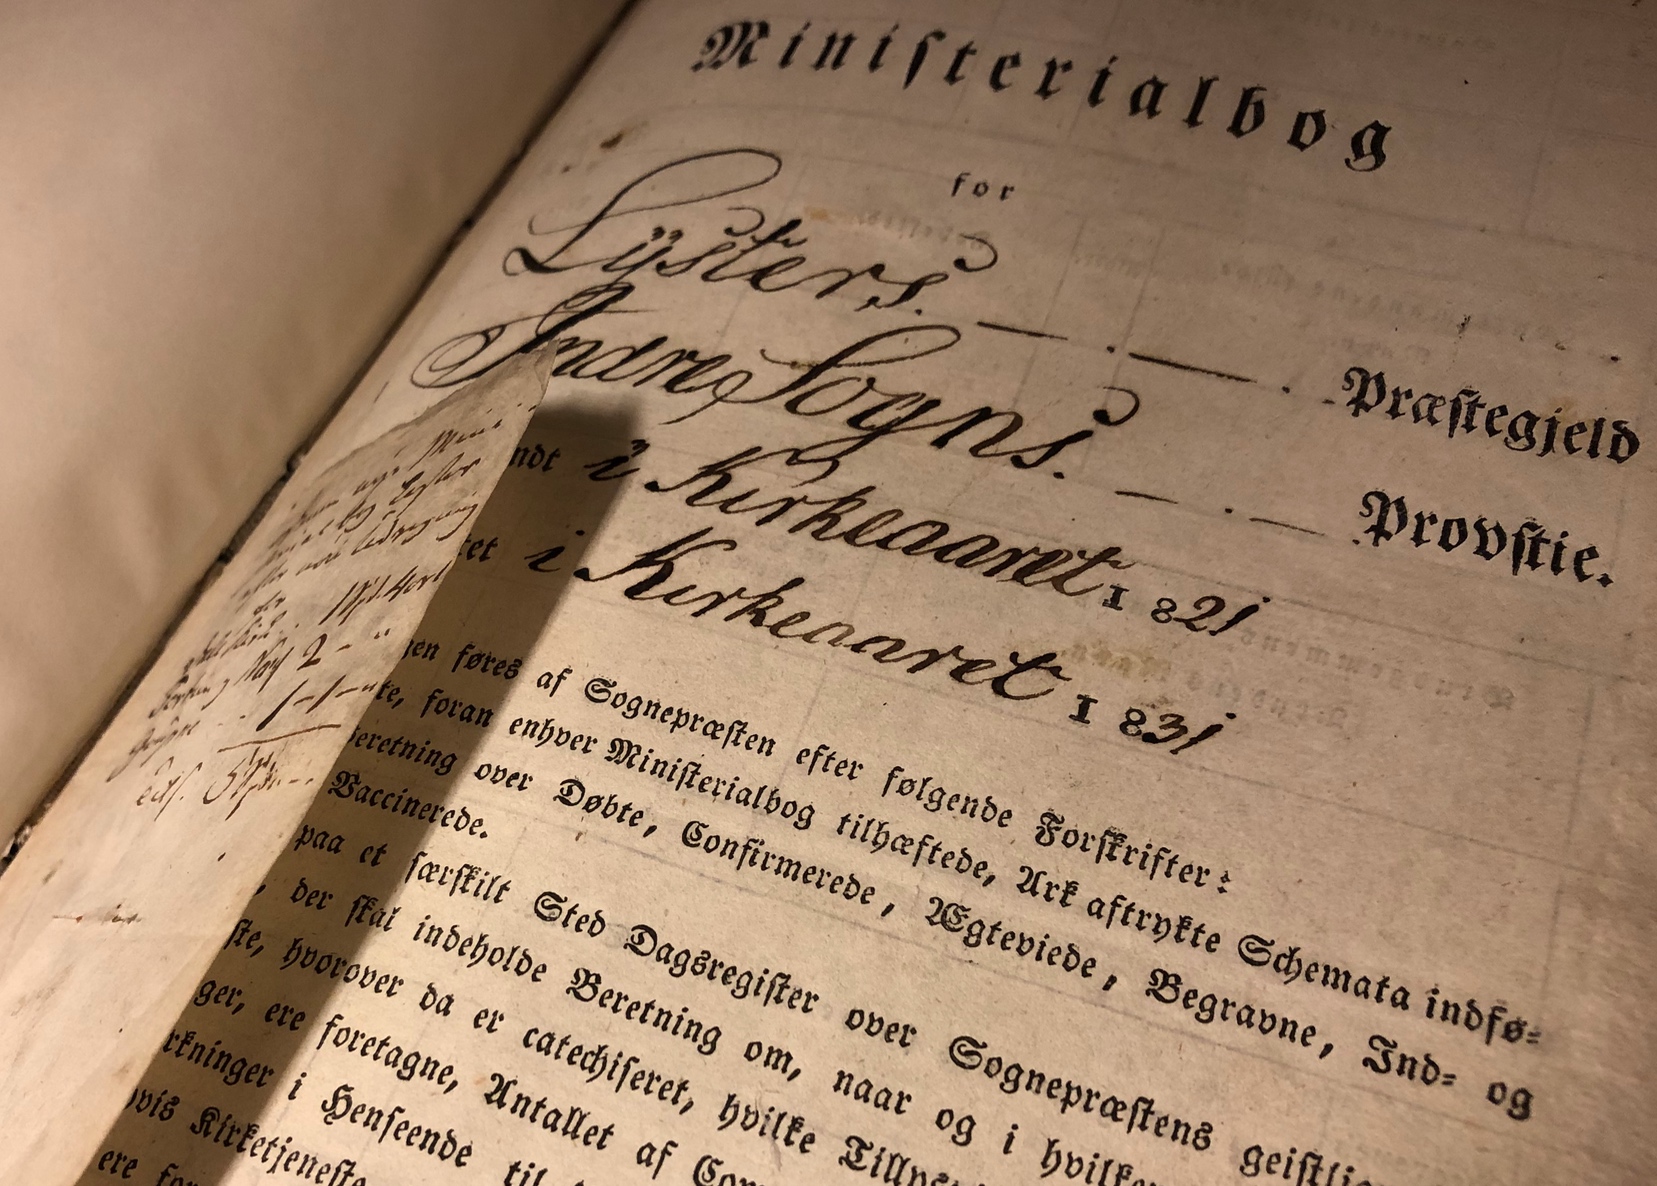 Ministerialbog
for
Lÿsters. Præstegjeld
Indre Sogns. Provstie.
ndt i Kirkeaaret 1821
tet i Kirkeaaret 1831
gen føres af Sognepræsten efter følgende Forskrifter:
te, foran enhver Ministerialbog tilhæftede, Ark aftrykte Schemata indfø=
Beretning over Døbte, Confirmerede, Ægteviede, Begravne, Ind= og
Vaccinerede.
paa et særskilt Sted Dagsregister over Sognepræstens geistli
, der skal indeholde Beretning om, naar og i hvilke
ste, hvorover da er catechiseret, hvilke Tillys
ger, ere foretagne, Antallet af Com
rkninger i Henseende til
vis Kirketjeneste
ere for